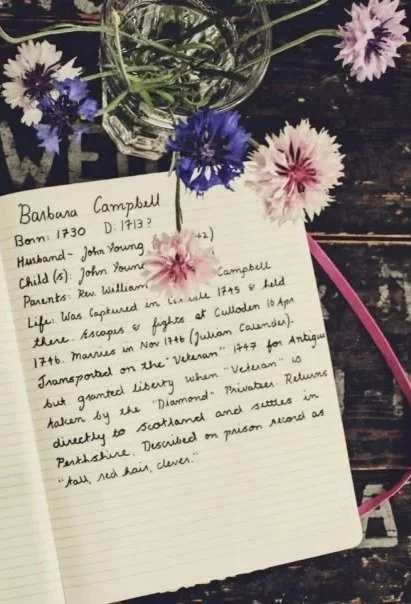 WE
Barbara Campbell
Born: 1730 D: 1713?
Husband- John Young 2)
Child(s): John Young
Parents: Rev. William Campbell
Life: Was captured in 1745 & held
there. Escapes & fights at Culloden 16 Apr
1746. Marries in Nov 1746 (Julian Calender).
Transported on the "Veteran" 1747 for Antigua
but granted liberty when "Veteran" is
taken by the "Diamond" Privateer. Returns
directly to Scotland and settles in
Perthshire. Described on prison record as
"tall, red hair, clever."
A